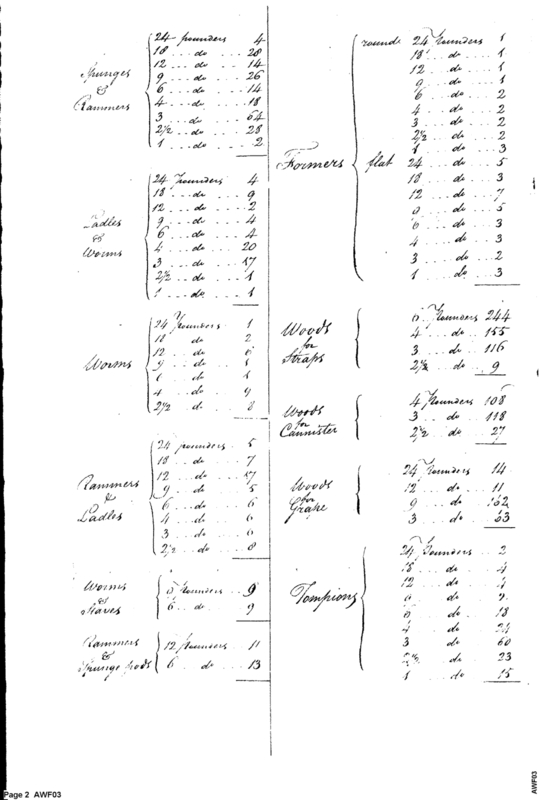 Spunges
&
Rammers
24 pounders 4
18 do 28
12 do 14
9 do 26
6 do 14
4 do 18
3 do 64
2½ do 28
1 do 2
Ladles
&
Worms
24 Pounders 4
18 do 9
12 do 2
9 do 4
6 do 4
4 do 20
3 do 17
2½ do 1
1 do 1
Worms
24 Pounders 1
18 do 2
12 do 6
9 do
do 1
4 do 9
2½ do 8
Rammers
&
Ladles
24 pounders 5
18 do 7
12 do 17
9 do 5
6 do 6
4 do 6
3 do 6
2½ do 8
Worms
&
Staves
Pounders 9
6 do 9
Rammers
&
Spunge rods
12 Pounders 11
6 do 13
Formers
round 24 Pounders 1
18 do 1
12 do 1
9 do 1
6 do 2
4 do 2
3 do 2
2½ do 2
1 do 3
flat 24 do 5
18 do 3
12 do 7
do 5
6 do 3
4 do 3
3 do 2
1 do 3
Woods
for
Straps
6 Pounders 244
4 do 155
3 do 116
2½ do 9
Woods
for
Cannister
4 Pounders 108
3 do 118
2½ do 27
Woods
for
Grape
24 Pounders 14
12 do 11
9 do 162
3 do 63
Tompions
24 Pounders 2
18 do 4
12 do
do
do 18
4 do 24
3 do 60
2½ do 23
1 do 15
Page 2 AWF03
AWF03